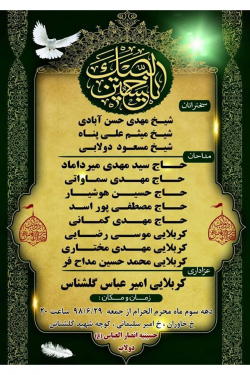 لبیک یا حسین
سخنرانان
شیخ مهدی حسن آبادی
شیخ میثم علی پناه
شیخ مسعود دولابی
مداحان
حاج سید مهدی میرداماد
حاج مهدی سماواتی
حاج حسین هوشیار
حاج مصطفی پور اسد
حاج مهدی کمانی
کربلایی موسی رضایی
کربلایی مهدی مختاری
کربلایی محمد حسین مداح فر
عزاداری
کربلایی امیر عباس گلشناس
زمان و مکان :
دهه سوم ماه محرم الحرام از جمعه ۹۸/۶/۲۹ ساعت ۲۰
خ خاوران ، خ امیر سلیمانی ، کوچه شهید گلشناس
حسینیه انصار العباس (ع)
دولاب